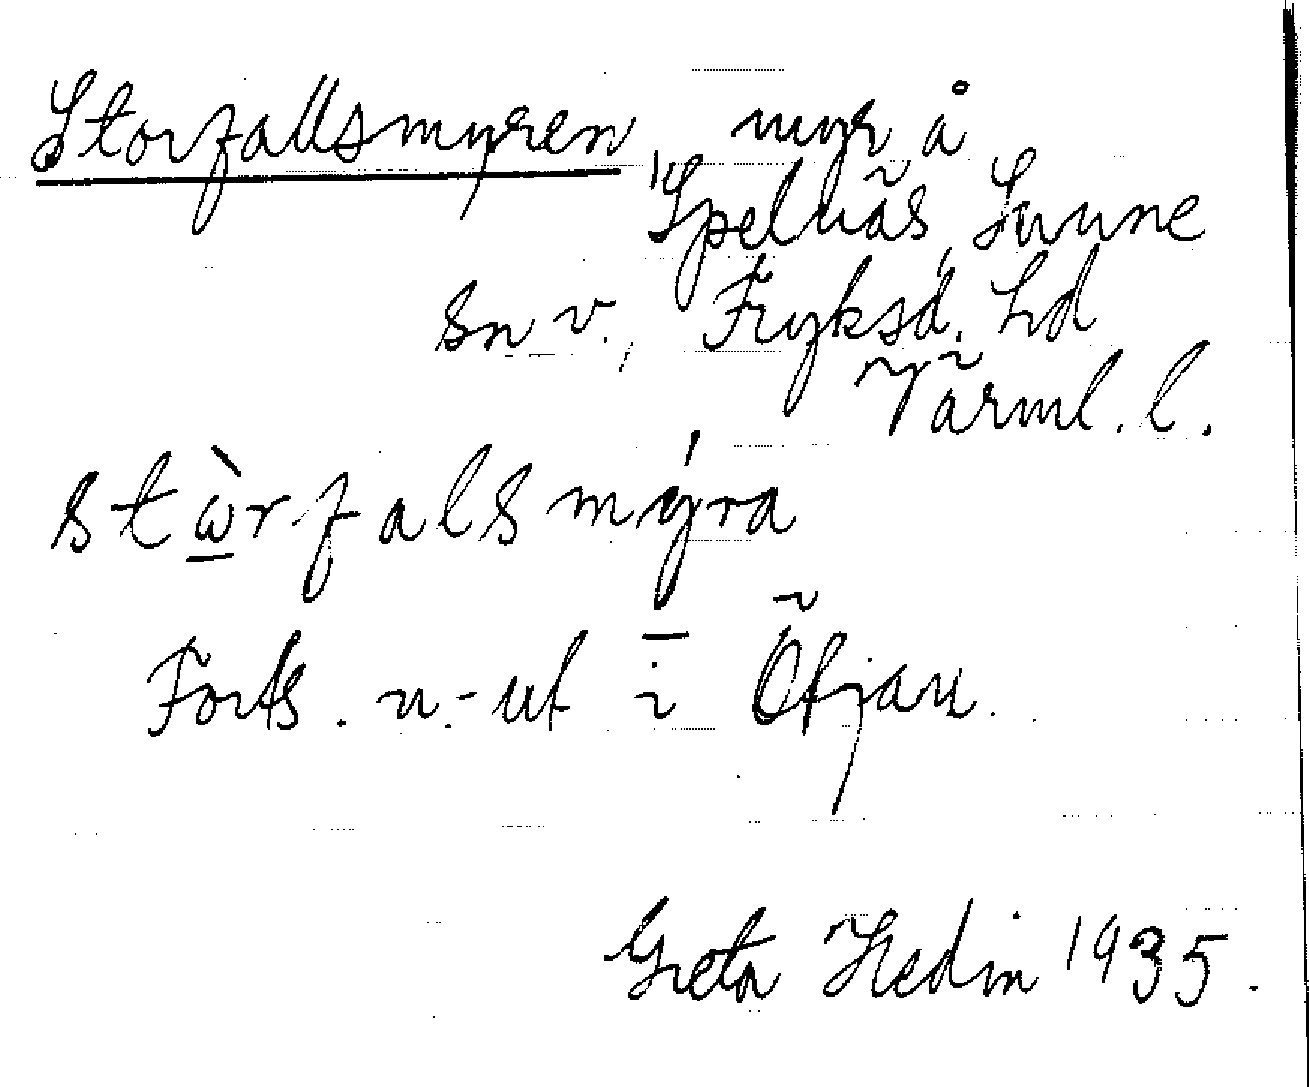 Storfallsmyren, myr å
Spelnäs, Sunne
sn v., Fryksd. hd
Värml. l.
stὼ̲rfalsmýra
Forts. n.-ut i Öfjäll.
Greta Hedin 1935.